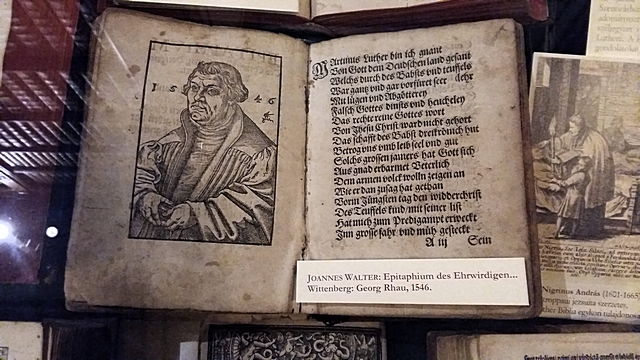 1 5 4 6
Martinus Luther bin ich gnant
Von Gott dem Deudschen land gesant
Welchs durch des Babsts und teuffels
lehr
War gantz und gar vorfüret seer
Mit lügen und Abgötterey
Falsch Gottes dinsts und heucheley
Das rechte reine Gottes wort
Von Jhesu Christ ward nicht gehort
Das schafft des Babst dreikrönich hut
Betrog uns umb leib seel und gut
Solchs grossen jamers hat Gott sich
Aus gnad erbarmet Veterlich
Dem armen volck wolln zeigen an
Wie er dan zusag hat gethan
Vorm Jüngsten tag den widderchrist
Des Teuffels kind mit seiner list
Hat mich zum Predigampt erweckt
Inn grosse fahr und müh gesteckt
A iij Sein
JOANNES WALTER: Epitaphium des Ehrwirdigen...
Wittenberg: Georg Rhau, 1546.
Nigrinus András (1601-166
troppaui jezsuita szerzetes,
her Biblia egykori tulajdonosa